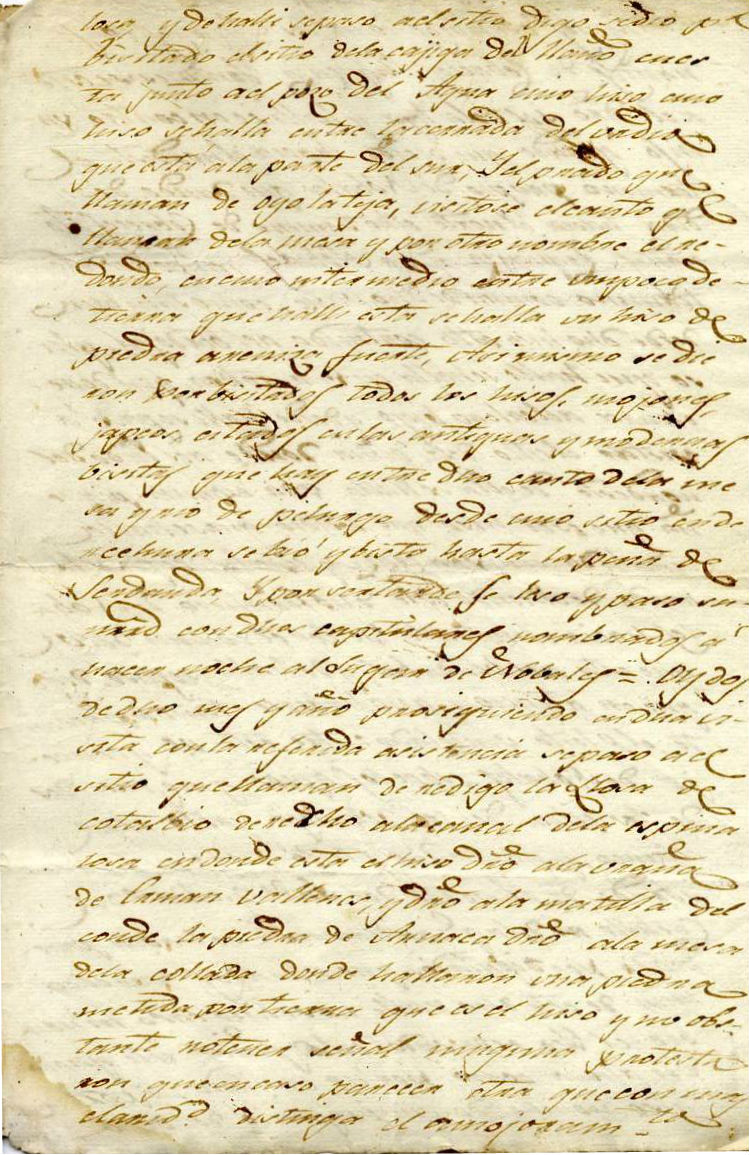 losa y de halli se paso a el sitio digo se dio por
bisitado el sitio de la cajiga del llano en es
ta junto a el pozo del Agua cuio hiso cuio
hiso se halla entre la cerrada del
que esta a la parte del sur, Y el prado qe
llaman de oyo la teja, visitose el canto qe
llaman de la mesa y por otro nombre el re-
dondo, en cuio intermedio entre un poco de-
tierra que halli esta se halla un hiso de
piedra arenisa fuerte, Asi mismo se die
ron por bisitados todos los hisos, mojones,
citados en las antiguas y modernas
bisitas que hay entre dho canto de la me
sa y rio de peluago desde cuio sitio en de
rechura se bió y bisto hasta la peña de
Sendunda, Y por ser tarde se hiso y paso su
mrd con dhos capitulares nombrados a
hacer noche al Lugar de Nobales = Oy dos
de dho mes y año prosiguiendo en dha vi-
sita con la referida asistencia se paso a el
sitio que llaman de redigo la Llosa de
cotalbio derecho a la canal de la espina
losa en donde esta el hiso dro a la braña
de vallenes, y dro a la matilla del
conde la piedra de Arnaca dro a la mesa
de la collada donde hallaron una piedra
metida por tierra que es el hiso y no obs-
tante no tener señal ninguna protesta
ron que en caso parecer otra que con mas
claridd distinga el amojonamto